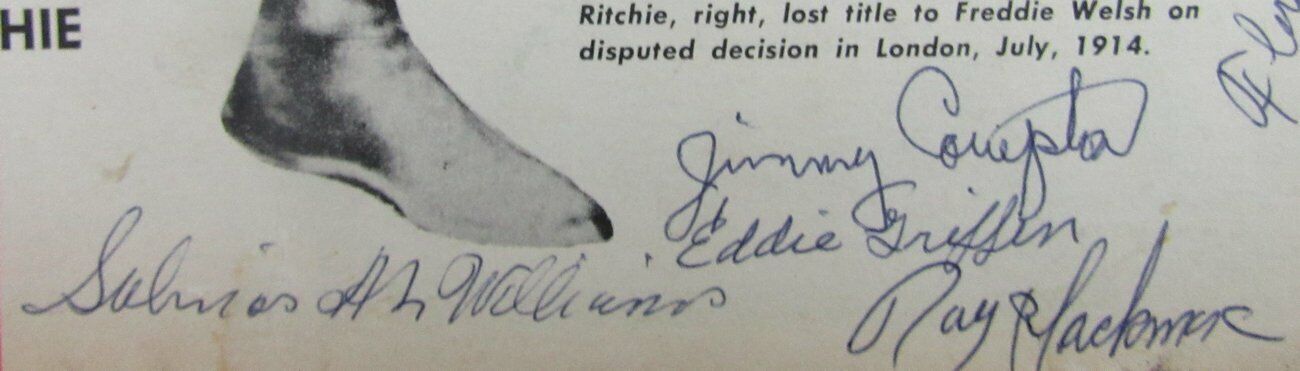 HIE
Ritchie, right, lost title to Freddie Welsh on
disputed decision in London, July, 1914.
Jimmy Compton
Eddie Griffin
Williams
Ray